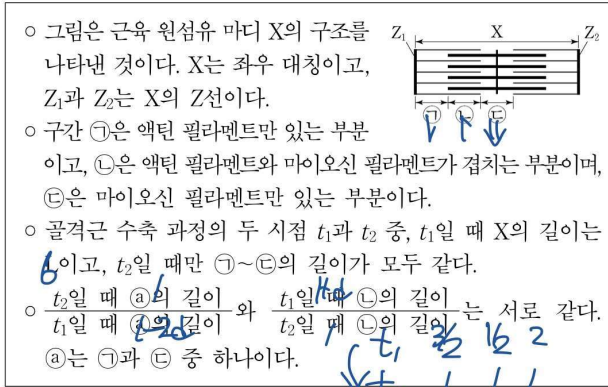 ○ 그림은 근육 원섬유 마디 X의 구조를
나타낸 것이다. X는 좌우 대칭이고,
Z₁과 Z₂는 X의 Z선이다.
Z₁ X Z₂
㉠ ㉡ ㉢
○ 구간 ㉠은 액틴 필라멘트만 있는 부분
이고, ㉡은 액틴 필라멘트와 마이오신 필라멘트가 겹치는 부분이며,
㉢은 마이오신 필라멘트만 있는 부분이다.
○ 골격근 수축 과정의 두 시점 t₁과 t₂ 중, t₁일 때 X의 길이는
이고, t₂일 때만 ㉠~㉢의 길이가 모두 같다.
6
○ t₂일 때 ⓐ의 길이 / t₁일 때 ⓐ의 길이 와 t₁일 때 ㉡의 길이 / t₂일 때 ㉡의 길이 는 서로 같다.
1-2d
t₁ 3/2 1/2 2
ⓐ는 ㉠과 ㉢ 중 하나이다.